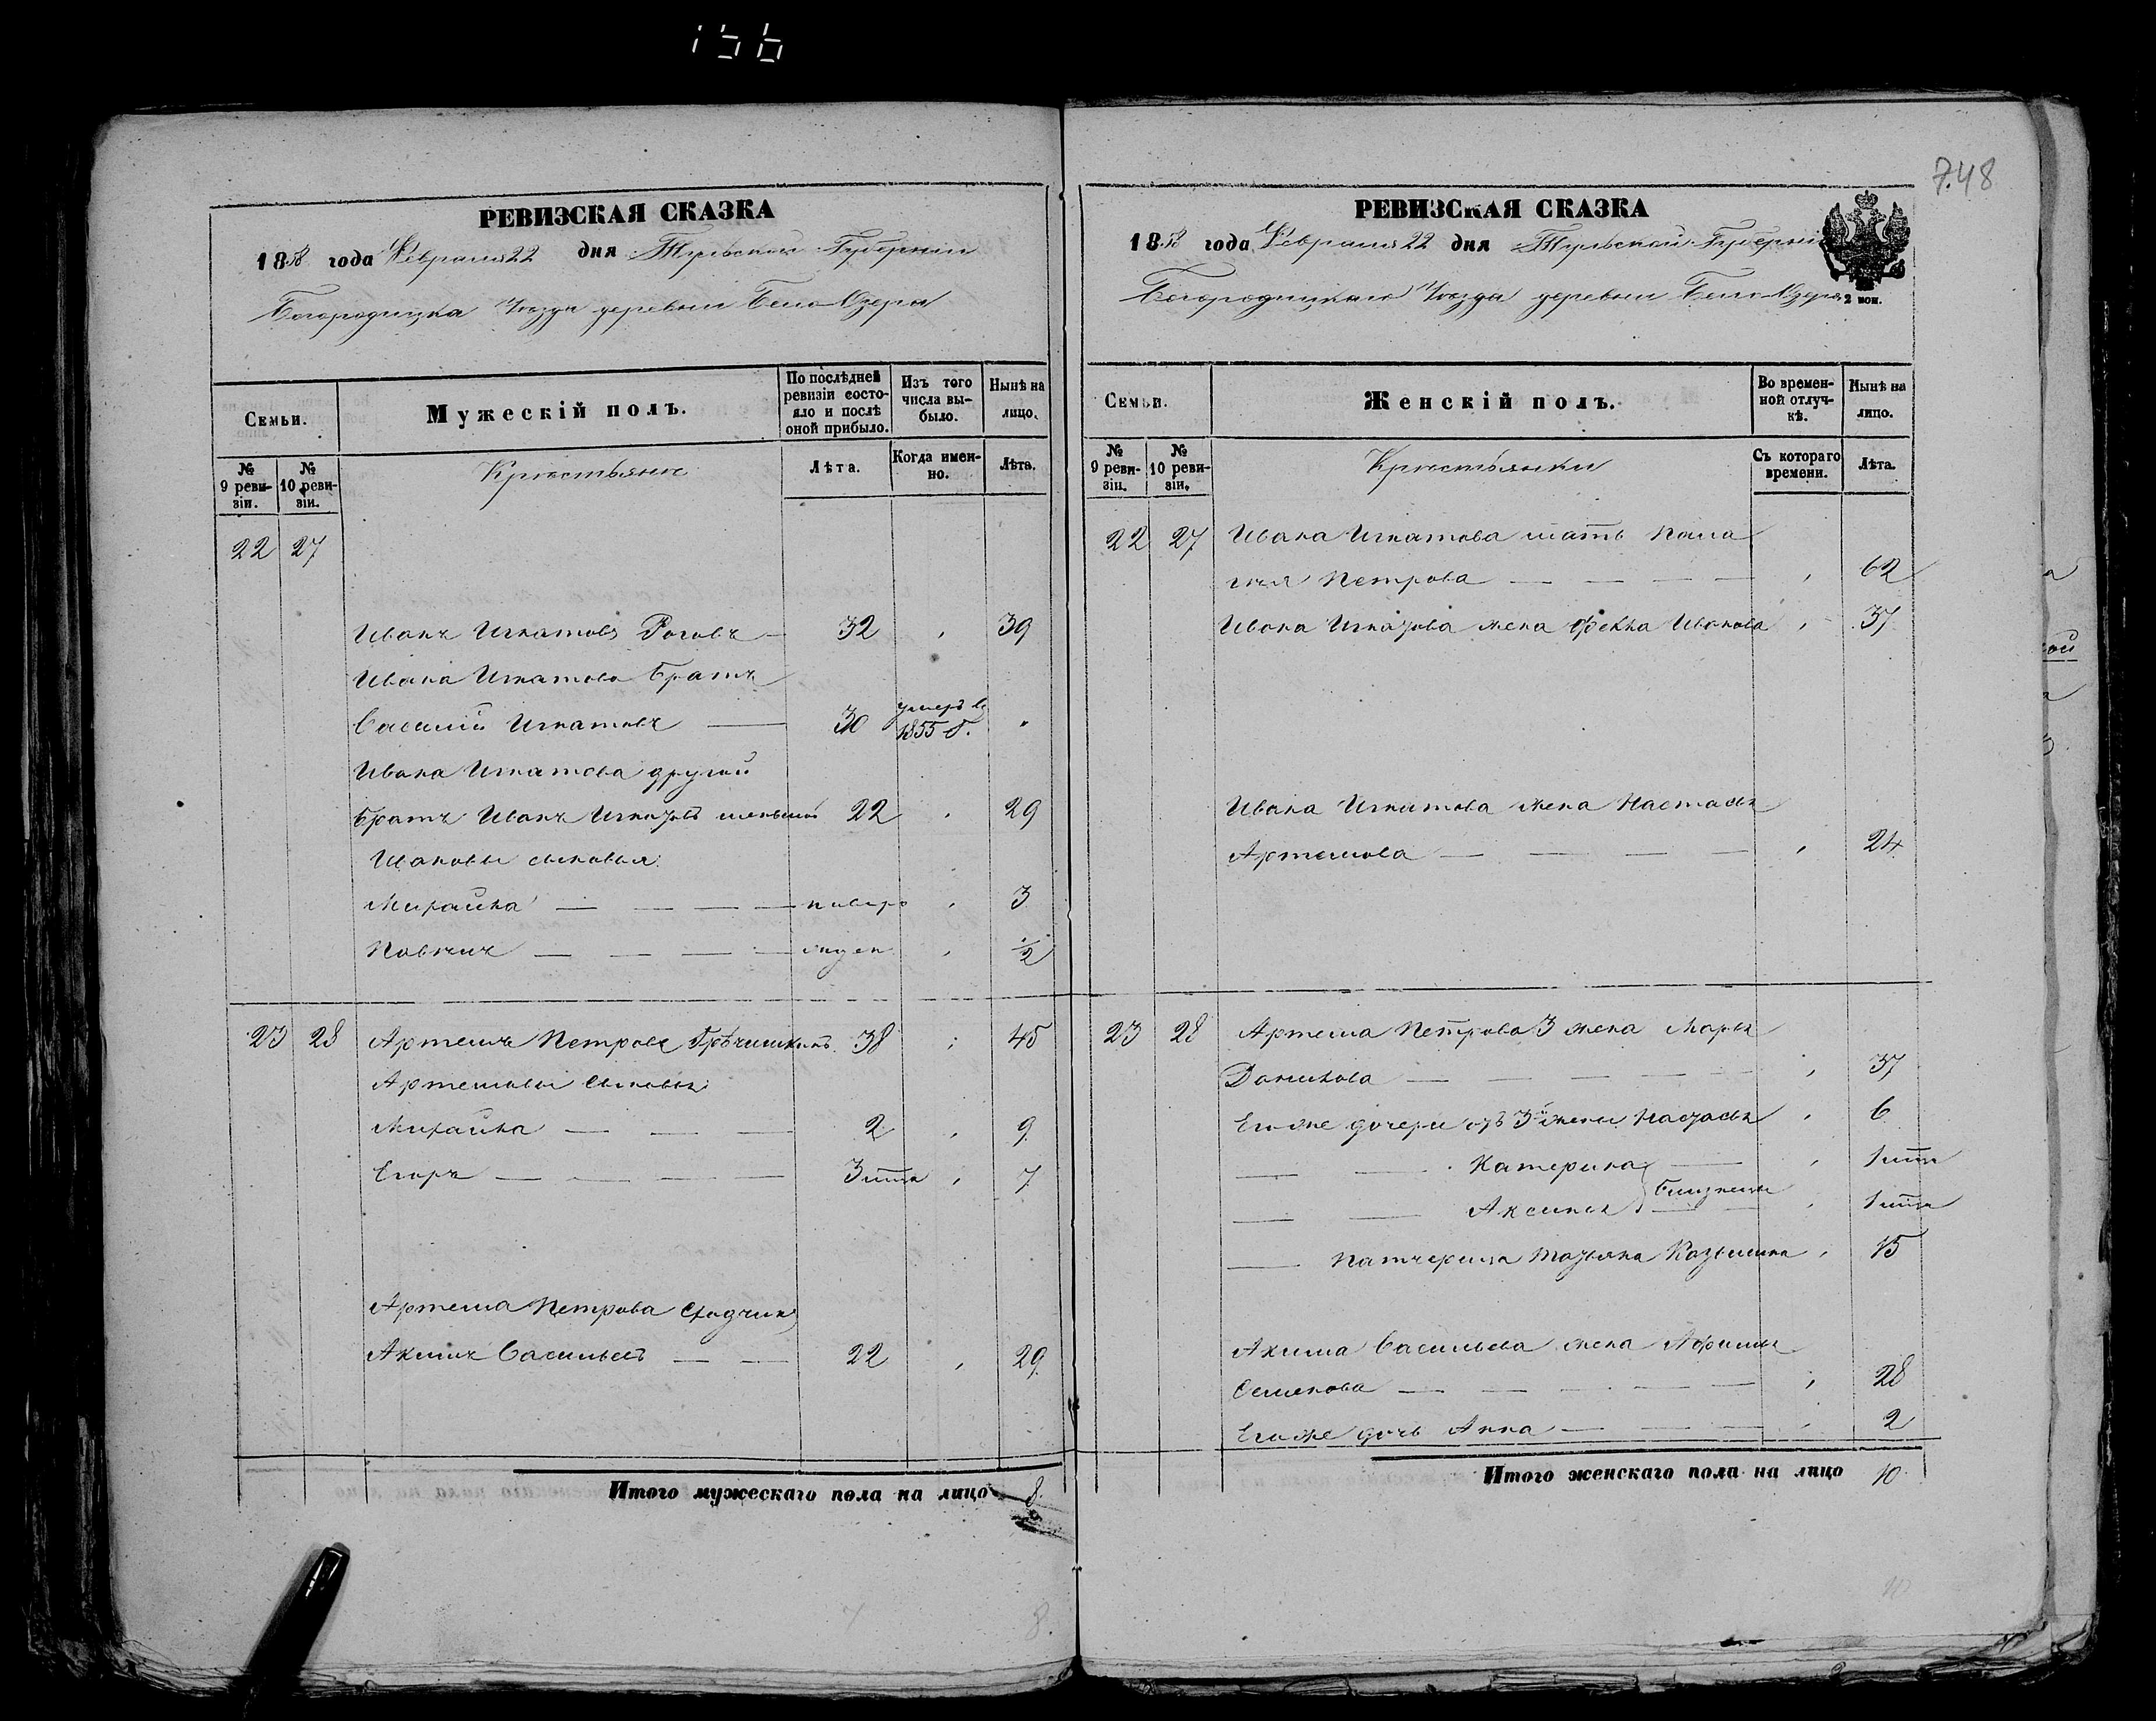 156
748
РЕВИЗСКАЯ СКАЗКА
1858 года Февраля 22 дня Тульской Губернии
Богородицка Уезда деревни Бело Озера
Семьи.
Мужескій полъ.
По послѣдней ревизіи состояло и послѣ оной прибыло.
Изъ того числа выбыло.
Нынѣ на лицо.
№ 9 ревизіи.
№ 10 ревизіи.
Крестьяне
Лѣта.
Когда именно.
Лѣта.
22 27
Иванъ Игнатовъ Роговъ 32 39
Ивана Игнатова братъ
Василий Игнатовъ 30 умеръ в 1855 г.
Ивана Игнатова другой
братъ Иванъ Игнатовъ меньшой 22 29
Ивановы сыновья
Михайла 3
Павелъ 1/2
23 28 Артемъ Петровъ 38 45
Артемовы сыновья
Михайла 2 9
Егоръ 3 7
Артема Петрова
Акимъ Васильевъ 22 29
Итого мужескаго пола на лицо 8.
РЕВИЗСКАЯ СКАЗКА
1858 года Февраля 22 дня Тульской Губернии
Богородицкаго Уезда деревни Бело Озера
2 коп.
Семьи.
Женскій полъ.
Во временной отлучкѣ.
Нынѣ на лицо.
№ 9 ревизіи.
№ 10 ревизіи.
Крестьянки
Съ котораго времени.
Лѣта.
22 27 Ивана Игнатова мать Пела
гия Петрова 62
Ивана Игнатова жена Фекла Иванова 37
Ивана Игнатова жена Настасья
Артемова 24
23 28 Артема Петрова 3 жена Марья
Данилова 37
Его же дочери отъ 3й жены Настасья 6
Катерина 1
Аксинья близнецы 1
Татьяна 15
Акима Васильева жена Афимья
Семенова 28
Его же дочь Анна 2
Итого женскаго пола на лицо 10.
7
8.
10